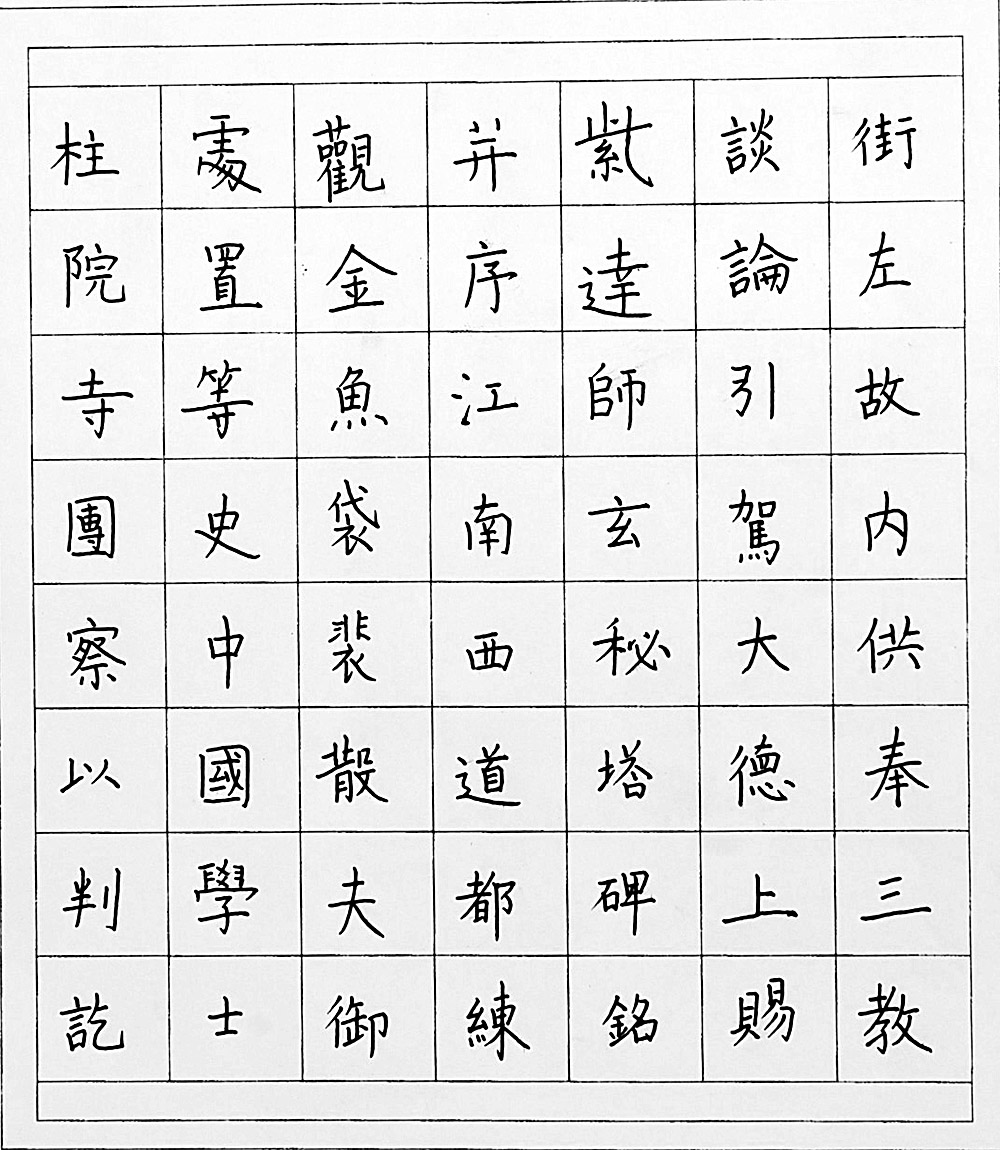 街左故内供奉三教
談論引駕大德上賜
紫達師玄秘塔碑銘
并序江南西道都練
觀金魚袋裴散夫御
處置等史中國學士
柱院寺團察以判訖